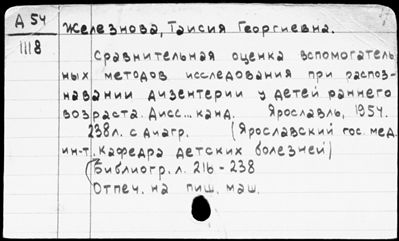 Д 54
1118
Железнова, Таисия Георгиевна.
Сравнительная оценка вспомогатель
ных методов исследования при распоз-
навании дизентерии у детей раннего
возраста. Дисс... канд. Ярославль, 1954.
238л. с диагр. (Ярославский гос. мед.
ин-т. Кафедра детских болезней)
(Библиогр. л. 216 - 238
Отпеч. на пиш. маш.